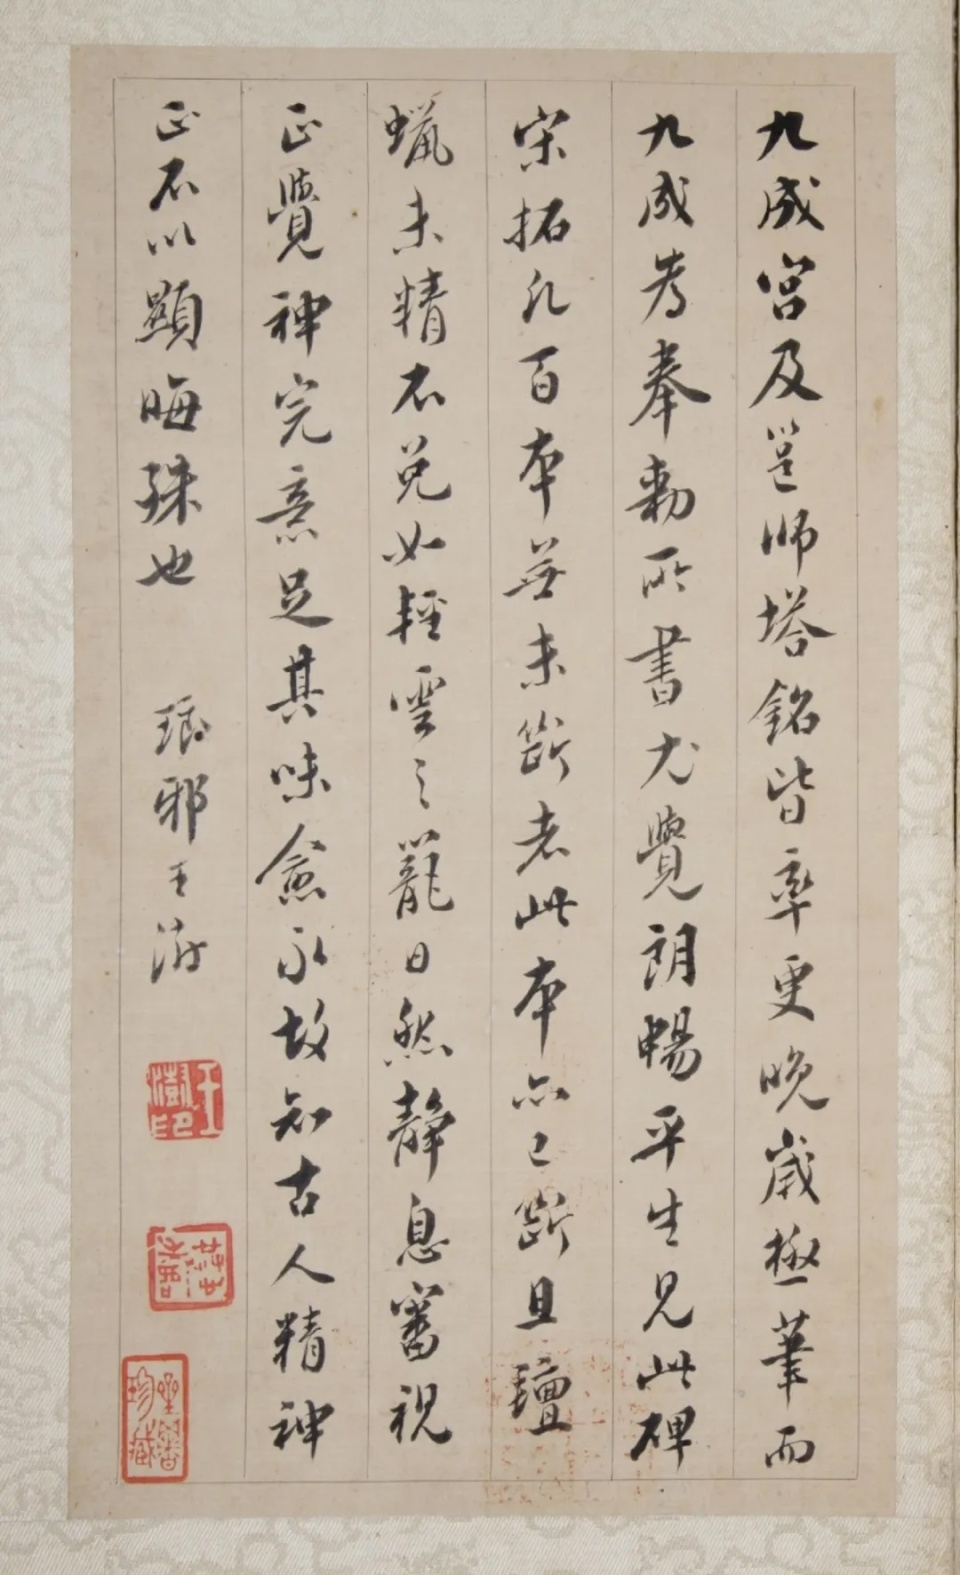 九成宮及邕師塔銘皆率更晚歲極筆而
九成考奉勅所書尤覺朗暢平生見此碑
宋拓凡百本無未斷者此本亦已斷且氊
蠟未精不免如輕雲之籠日然靜息審視
正覺神完意足其味愈永故知古人精神
正不以顯晦殊也 琅邪王澍
王澍印
珍藏